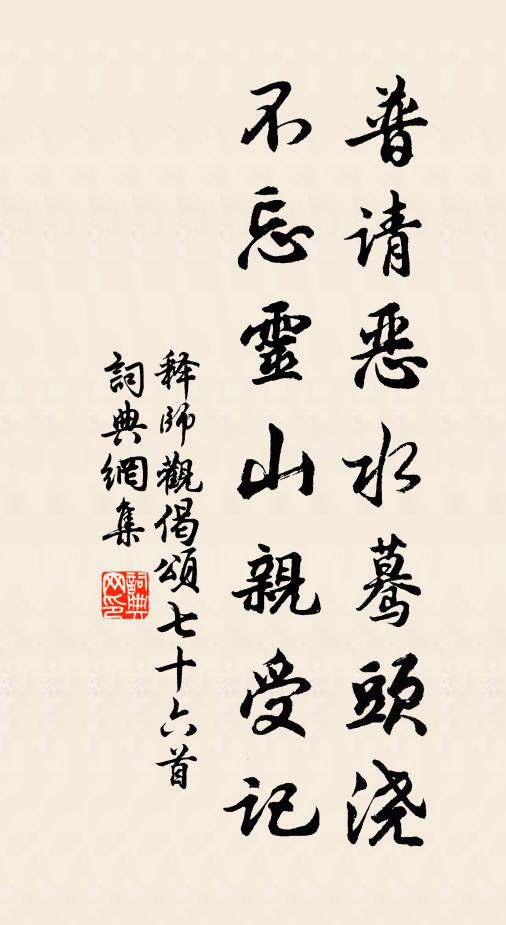 普请恶水蓦頭浇
不忘靈山親受记
释师觀偈頌七十六首
詞典網集
詞典网印